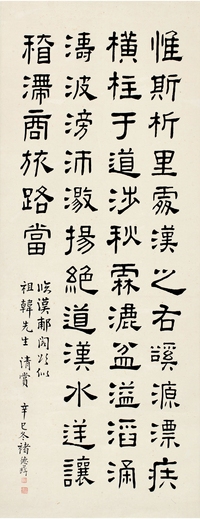 惟斯析里處漢之右谿源漂疾
橫柱于道涉秋霖漉盆溢滔涌
濤波滂沛激揚絕道漢水逆讓
稽滯商旅路當
臨漢郙閣頌似
祖韓先生清賞 辛巳冬褚德彝